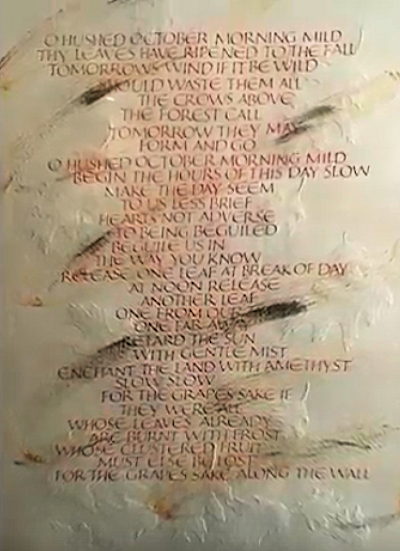 O HUSHED OCTOBER MORNING MILD
THY LEAVES HAVE RIPENED TO THE FALL
TOMORROWS WIND IF IT BE WILD
SHOULD WASTE THEM ALL
THE CROWS ABOVE
THE FOREST CALL
TOMORROW THEY MAY
FORM AND GO
O HUSHED OCTOBER MORNING MILD
BEGIN THE HOURS OF THIS DAY SLOW
MAKE THE DAY SEEM
TO US LESS BRIEF
HEARTS NOT ADVERSE
TO BEING BEGUILED
BEGUILE US IN
THE WAY YOU KNOW
RELEASE ONE LEAF AT BREAK OF DAY
AT NOON RELEASE
ANOTHER LEAF
ONE FROM OUR
ONE FAR AWAY
RETARD THE SUN
WITH GENTLE MIST
ENCHANT THE LAND WITH AMETHYST
SLOW SLOW
FOR THE GRAPES SAKE IF
THEY WERE ALL
WHOSE LEAVES ALREADY
ARE BURNT WITH FROST
WHOSE CLUSTERED FRUIT
MUST ELSE BE LOST
FOR THE GRAPES SAKE ALONG THE WALL